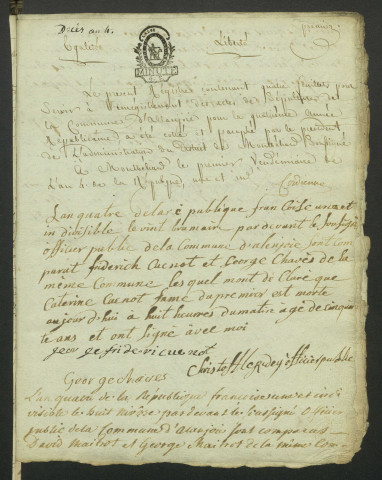 Décès an 4.
premier
Egalité
Liberté
MINUTE
Le present Régistre contenant feuillets pour
Servir à l'enregistrement des actes de
la Commune d'Allenjoie pour la quatrieme année
Republicaine, a été cotté et paraphé par le president
de L'administration du District de Montbeliard
à Montbeliard le premier Vendémiaire de
L'an 4. de la République, une et ind.
L'an quatre de la re publique fran Coise une et
in divisible le vint brumair par devant le sousigné
officier public de la Commune d'alenjoie sont com
parut frederich Cuenot et George Chavés de la
meme Commune les quel mont dé Clare que
Caterine Cuenot fame du premier est morte
aujour d'hui a huit heures du matin age de cinquan
te ans et ont signé avec moi
frideric cuenot
Christofle officier public
George chaves
L'an quatre de la Republique francoise une et indi
visible le huit nivose par devant le sousigné officier
public de la Commune d'Alanjoi sont comparus
David Mailhot et George Mailhot de la mème Com